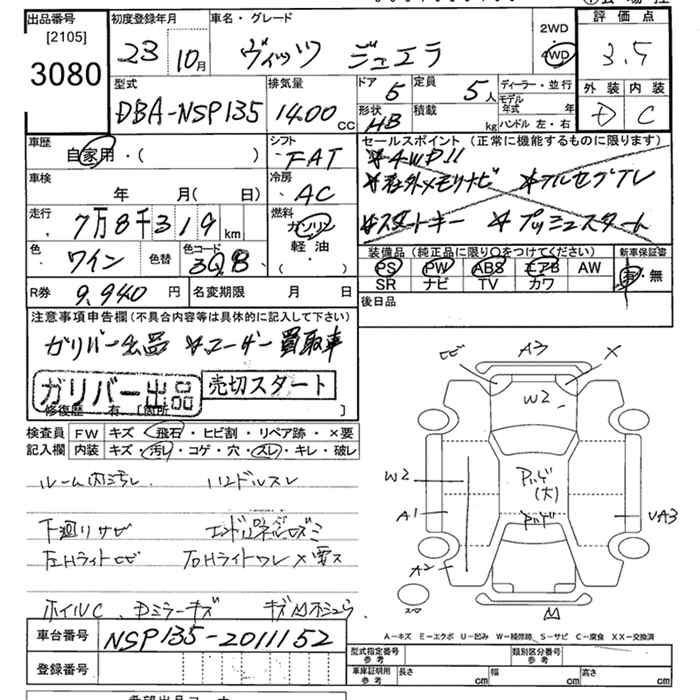 出品番号
[2105]
3080
初度登録年月
23 10月
車名・グレード
ヴィッツ ジュエラ
2WD
4WD
評価点
3.5
外装 内装
D C
型式
DBA-NSP135
排気量
1400 cc
ドア 5
定員 5人
形状 HB
積載 kg
ディーラー・並行
モデル年式 年
ハンドル 左・右
車歴
自家用・( )
シフト
FAT
車検
年 月(日)
冷房
AC
走行
7万8千319km
燃料
ガソリン
軽油
( )
色
ワイン
色替
色コード
3Q8
R券 9,940円
名変期限 月 日
セールスポイント(正常に機能するものに限ります)
*4WD!!
*社外メモリナビ *フルセグTV
*スタートキー *プッシュスタート
装備品(純正品に限り○をつけてください)
PS PW ABS エアB AW
SR ナビ TV カワ
新車保証書
有・無
後日品
注意事項申告欄(不具合内容等は具体的に記入して下さい)
ガリバー出品 *ユーザー買取車
ガリバー出品
売切スタート
修復歴 有 [箇所 ]
検査員 FW キズ・飛石・ヒビ割・リペア跡・×要
記入欄 内装 キズ・汚れ・コゲ・穴・スレ・キレ・破レ
ルーム内汚レ ハンドルスレ
下廻りサビ
左Hライトヒビ 右Hライトワレ×要ス
ホイルC、Dミラーキズ
ヒビ A3 X
W2
W2
A1
A2
UA3
(大)
スペア
A-キズ E-エクボ U-凹み W-補修跡 S-サビ C-腐食 XX-交換済
車台番号
NSP135-2011152
登録番号
型式指定番号
参考
類別区分番号
参考
車庫証明用
参考
長さ cm
幅 cm
高さ cm